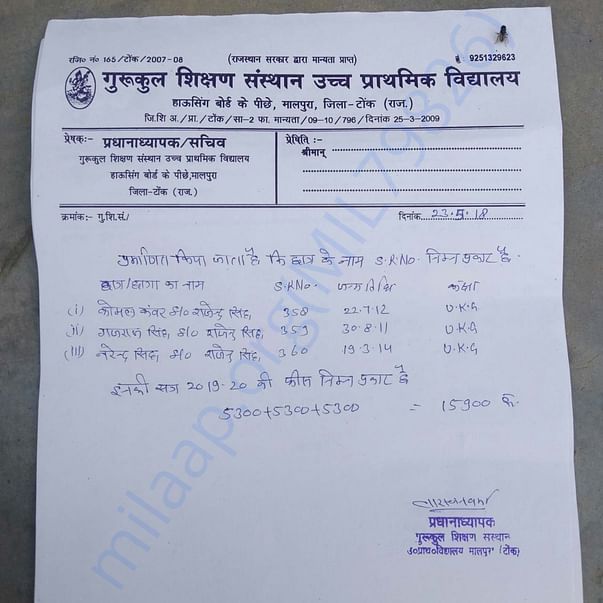 रजि० नं० 165/टोंक/2007-08 (राजस्थान सरकार द्वारा मान्यता प्राप्त) : 9251329623
गुरूकुल शिक्षण संस्थान उच्च प्राथमिक विद्यालय
हाऊसिंग बोर्ड के पीछे, मालपुरा, जिला-टोंक (राज.)
जि.शि अ./प्रा./टोंक/सा-2 फा. मान्यता/09-10/796/दिनांक 25-3-2009
प्रेषकः- प्रधानाध्यापक/सचिव
गुरूकुल शिक्षण संस्थान उच्च प्राथमिक विद्यालय
हाऊसिंग बोर्ड के पीछे,मालपुरा
जिला-टोंक (राज.)
प्रेषिति :-
श्रीमान्
क्रमांकः- गु.शि.सं./ दिनांक 23.5.18
प्रमाणित किया जाता है कि छात्र के नाम S.R.No. निम्न प्रकार है.
छात्र/छात्रा का नाम S.R.No. जन्म तिथि कक्षा
(i) कोमल कंवर d/o राजेन्द्र सिंह, 358 22.7.12 U.K.G
(ii) गजराज सिंह, s/o राजेन्द्र सिंह, 359 30.8.11 U.K.G
(iii) नरेन्द्र सिंह s/o राजेन्द्र सिंह, 360 19.3.14 U.K.G
इनकी सत्र 2019-20 की फीस निम्न प्रकार है
5300+5300+5300 = 15900 रु.
प्रधानाध्यापक
गुरूकुल शिक्षण संस्थान
उ०प्राथ०विद्यालय मालपुरा (टोंक)
milaap.org(MIL79826)